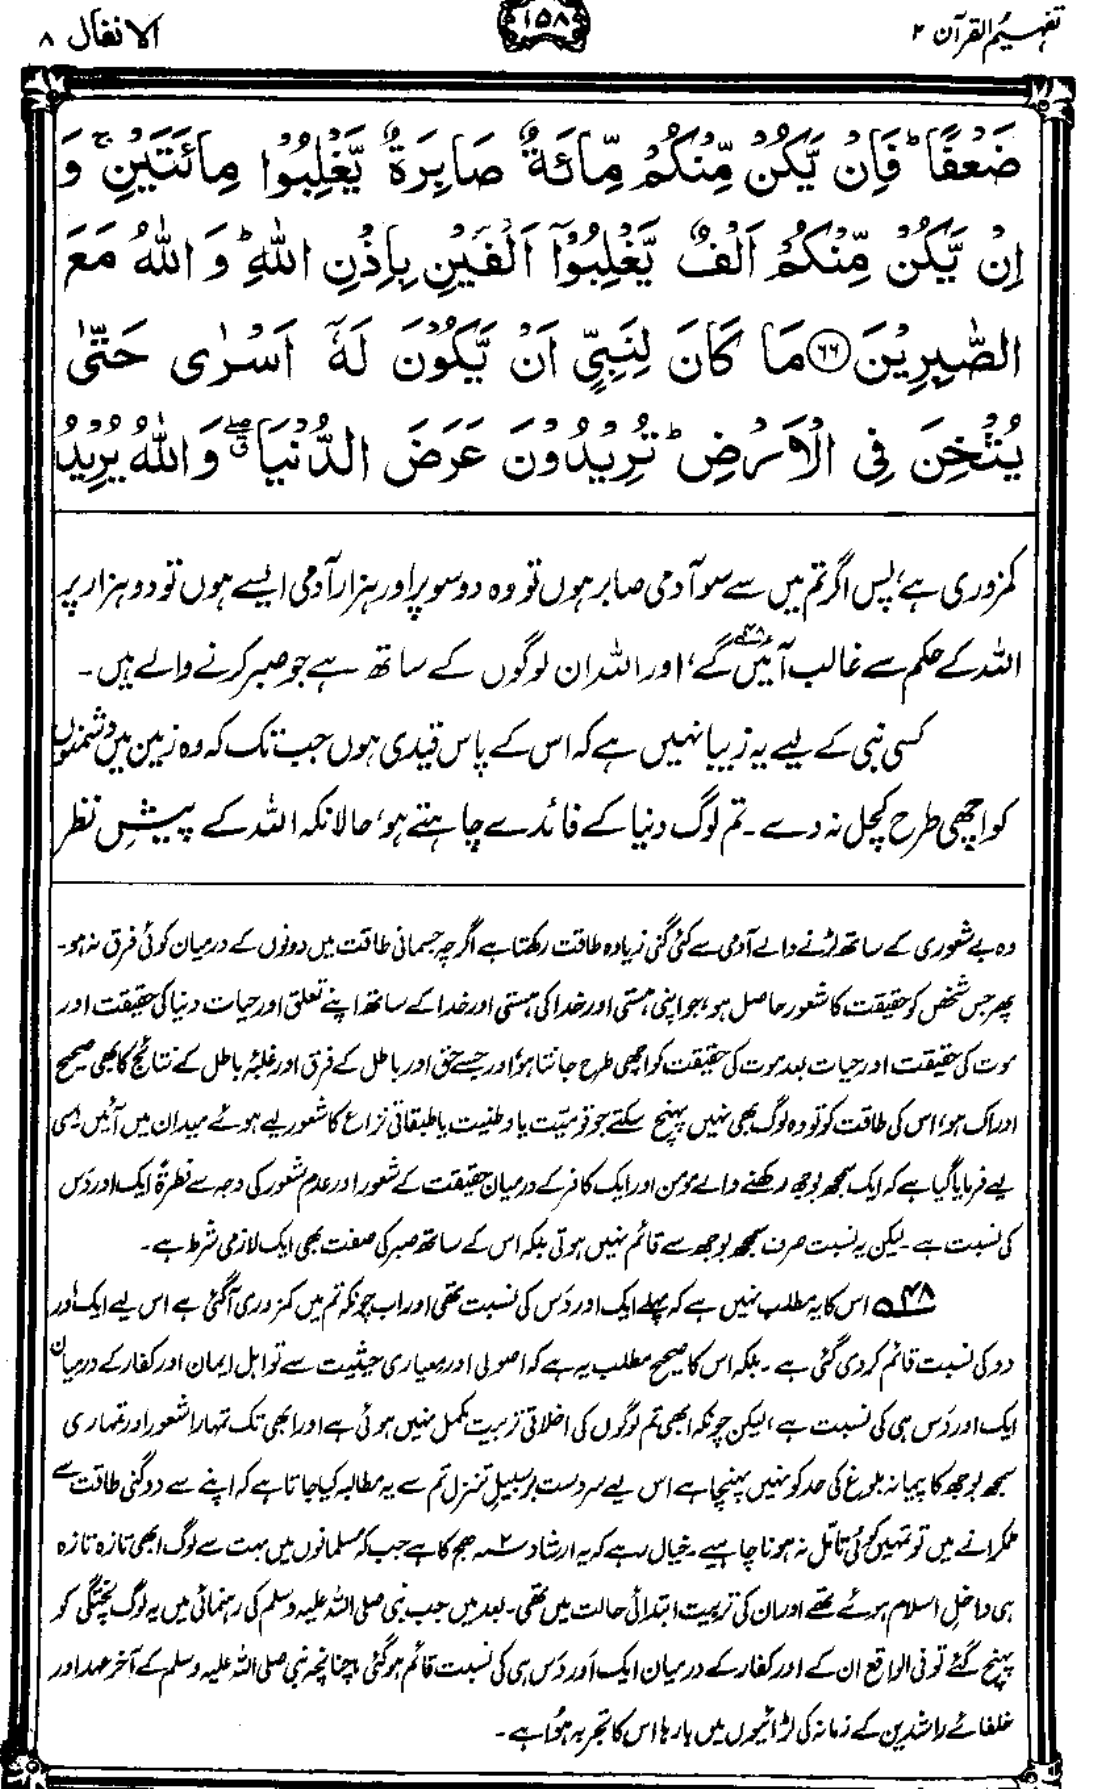 تفہیم القرآن ۲
۱۵۸
الانفال ۸
ضَعْفًا ؕ فَاِنْ یَّكُنْ مِّنْكُمْ مِّائَةٌ صَابِرَةٌ یَّغْلِبُوْا مِائَتَیْنِ ۚ وَ
اِنْ یَّكُنْ مِّنْكُمْ اَلْفٌ یَّغْلِبُوْۤا اَلْفَیْنِ بِاِذْنِ اللّٰهِ ؕ وَ اللّٰهُ مَعَ
الصّٰبِرِیْنَ ﴿۶۶﴾ مَا كَانَ لِنَبِیٍّ اَنْ یَّكُوْنَ لَهٗۤ اَسْرٰی حَتّٰی
یُثْخِنَ فِی الْاَرْضِ ؕ تُرِیْدُوْنَ عَرَضَ الدُّنْیَا ۖۗ وَ اللّٰهُ یُرِیْدُ
کمزوری ہے، پس اگر تم میں سے سو آدمی صابر ہوں تو وہ دو سو پر اور ہزار آدمی ایسے ہوں تو دو ہزار پر
اللہ کے حکم سے غالب آئیں گے،۴۸ اور اللہ ان لوگوں کے ساتھ ہے جو صبر کرنے والے ہیں۔
کسی نبی کے لیے یہ زیبا نہیں ہے کہ اس کے پاس قیدی ہوں جب تک کہ وہ زمین میں دشمنوں
کو اچھی طرح کچل نہ دے۔ تم لوگ دنیا کے فائدے چاہتے ہو، حالانکہ اللہ کے پیشِ نظر
وہ بے شعوری کے ساتھ لڑنے والے آدمی سے کئی گنی زیادہ طاقت رکھتا ہے اگرچہ جسمانی طاقت میں دونوں کے درمیان کوئی فرق نہ ہو۔
پھر جس شخص کو حقیقت کا شعور حاصل ہو، جو اپنی ہستی اور خدا کی ہستی اور خدا کے ساتھ اپنے تعلق اور حیات دنیا کی حقیقت اور
موت کی حقیقت اور حیات بعد موت کی حقیقت کو اچھی طرح جانتا ہو اور جسے حق اور باطل کے فرق اور غلبۂ باطل کے نتائج کا بھی صحیح
ادراک ہو، اس کی طاقت کو تو وہ لوگ بھی نہیں پہنچ سکتے جو قومیّت یا وطنیت یا طبقاتی نزاع کا شعور لیے ہوئے میدان میں آئیں۔ اسی
لیے فرمایا گیا ہے کہ ایک سمجھ بوجھ رکھنے والے مومن اور ایک کافر کے درمیان حقیقت کے شعور اور عدم شعور کی وجہ سے فطرۃً ایک اور دَس
کی نسبت ہے۔ لیکن یہ نسبت صرف سمجھ بوجھ سے قائم نہیں ہوتی بلکہ اس کے ساتھ صبر کی صفت بھی ایک لازمی شرط ہے۔
۴۸ اس کا یہ مطلب نہیں ہے کہ پہلے ایک اور دَس کی نسبت تھی اور اب چونکہ تم میں کمزوری آگئی ہے اس لیے ایک اور
دو کی نسبت قائم کر دی گئی ہے۔ بلکہ اس کا صحیح مطلب یہ ہے کہ اصولی اور معیاری حیثیت سے تو اہل ایمان اور کفار کے درمیان
ایک اور دَس ہی کی نسبت ہے، لیکن چونکہ ابھی تم لوگوں کی اخلاقی تربیت مکمل نہیں ہوئی ہے اور ابھی تک تمہارا شعور اور تمہاری
سمجھ بوجھ کا پیمانہ بلوغ کی حد کو نہیں پہنچا ہے اس لیے سردست برسبیلِ تنزل تم سے یہ مطالبہ کیا جاتا ہے کہ اپنے سے دوگنی طاقت سے
ٹکرانے میں تو تمہیں کوئی تأمل نہ ہونا چاہیے۔ خیال رہے کہ یہ ارشاد ۲ ھج کا ہے جب کہ مسلمانوں میں بہت سے لوگ ابھی تازہ تازہ
ہی داخل اسلام ہوئے تھے اور ان کی تربیت ابتدائی حالت میں تھی۔ بعد میں جب نبی صلی اللہ علیہ وسلم کی رہنمائی میں یہ لوگ پختگی کو
پہنچ گئے تو فی الواقع ان کے اور کفار کے درمیان ایک اَور دَس ہی کی نسبت قائم ہوگئی، چنانچہ نبی صلی اللہ علیہ وسلم کے آخر عہد اور
خلفائے راشدین کے زمانہ کی لڑائیوں میں بارہا اس کا تجربہ ہوا ہے۔